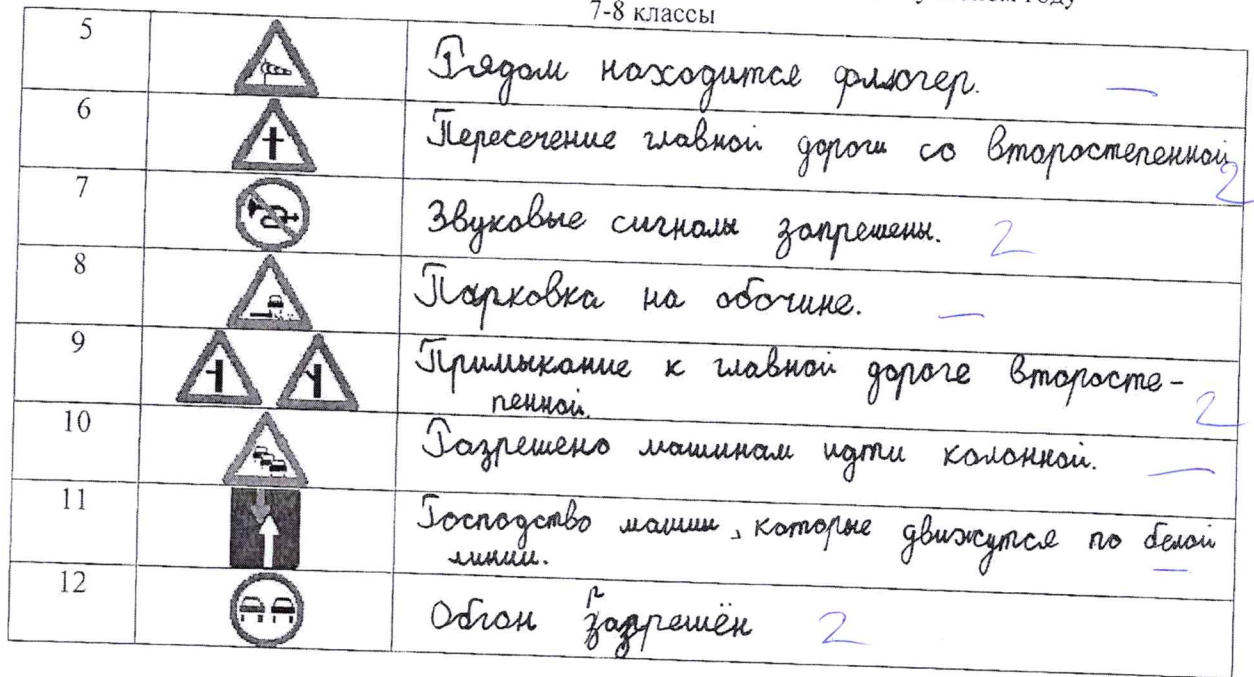 году
7-8 классы
5
Рядом находится флюгер. —
6
Пересечение главной дороги со второстепенной
2
7
Звуковые сигналы запрещены. 2
8
Парковка на обочине. —
9
Примыкание к главной дороге второсте-
пенной. 2
10
Разрешено машинам идти колонной. —
11
Господство машин, которые движутся по белой
линии. —
12
Обгон запрещён 2